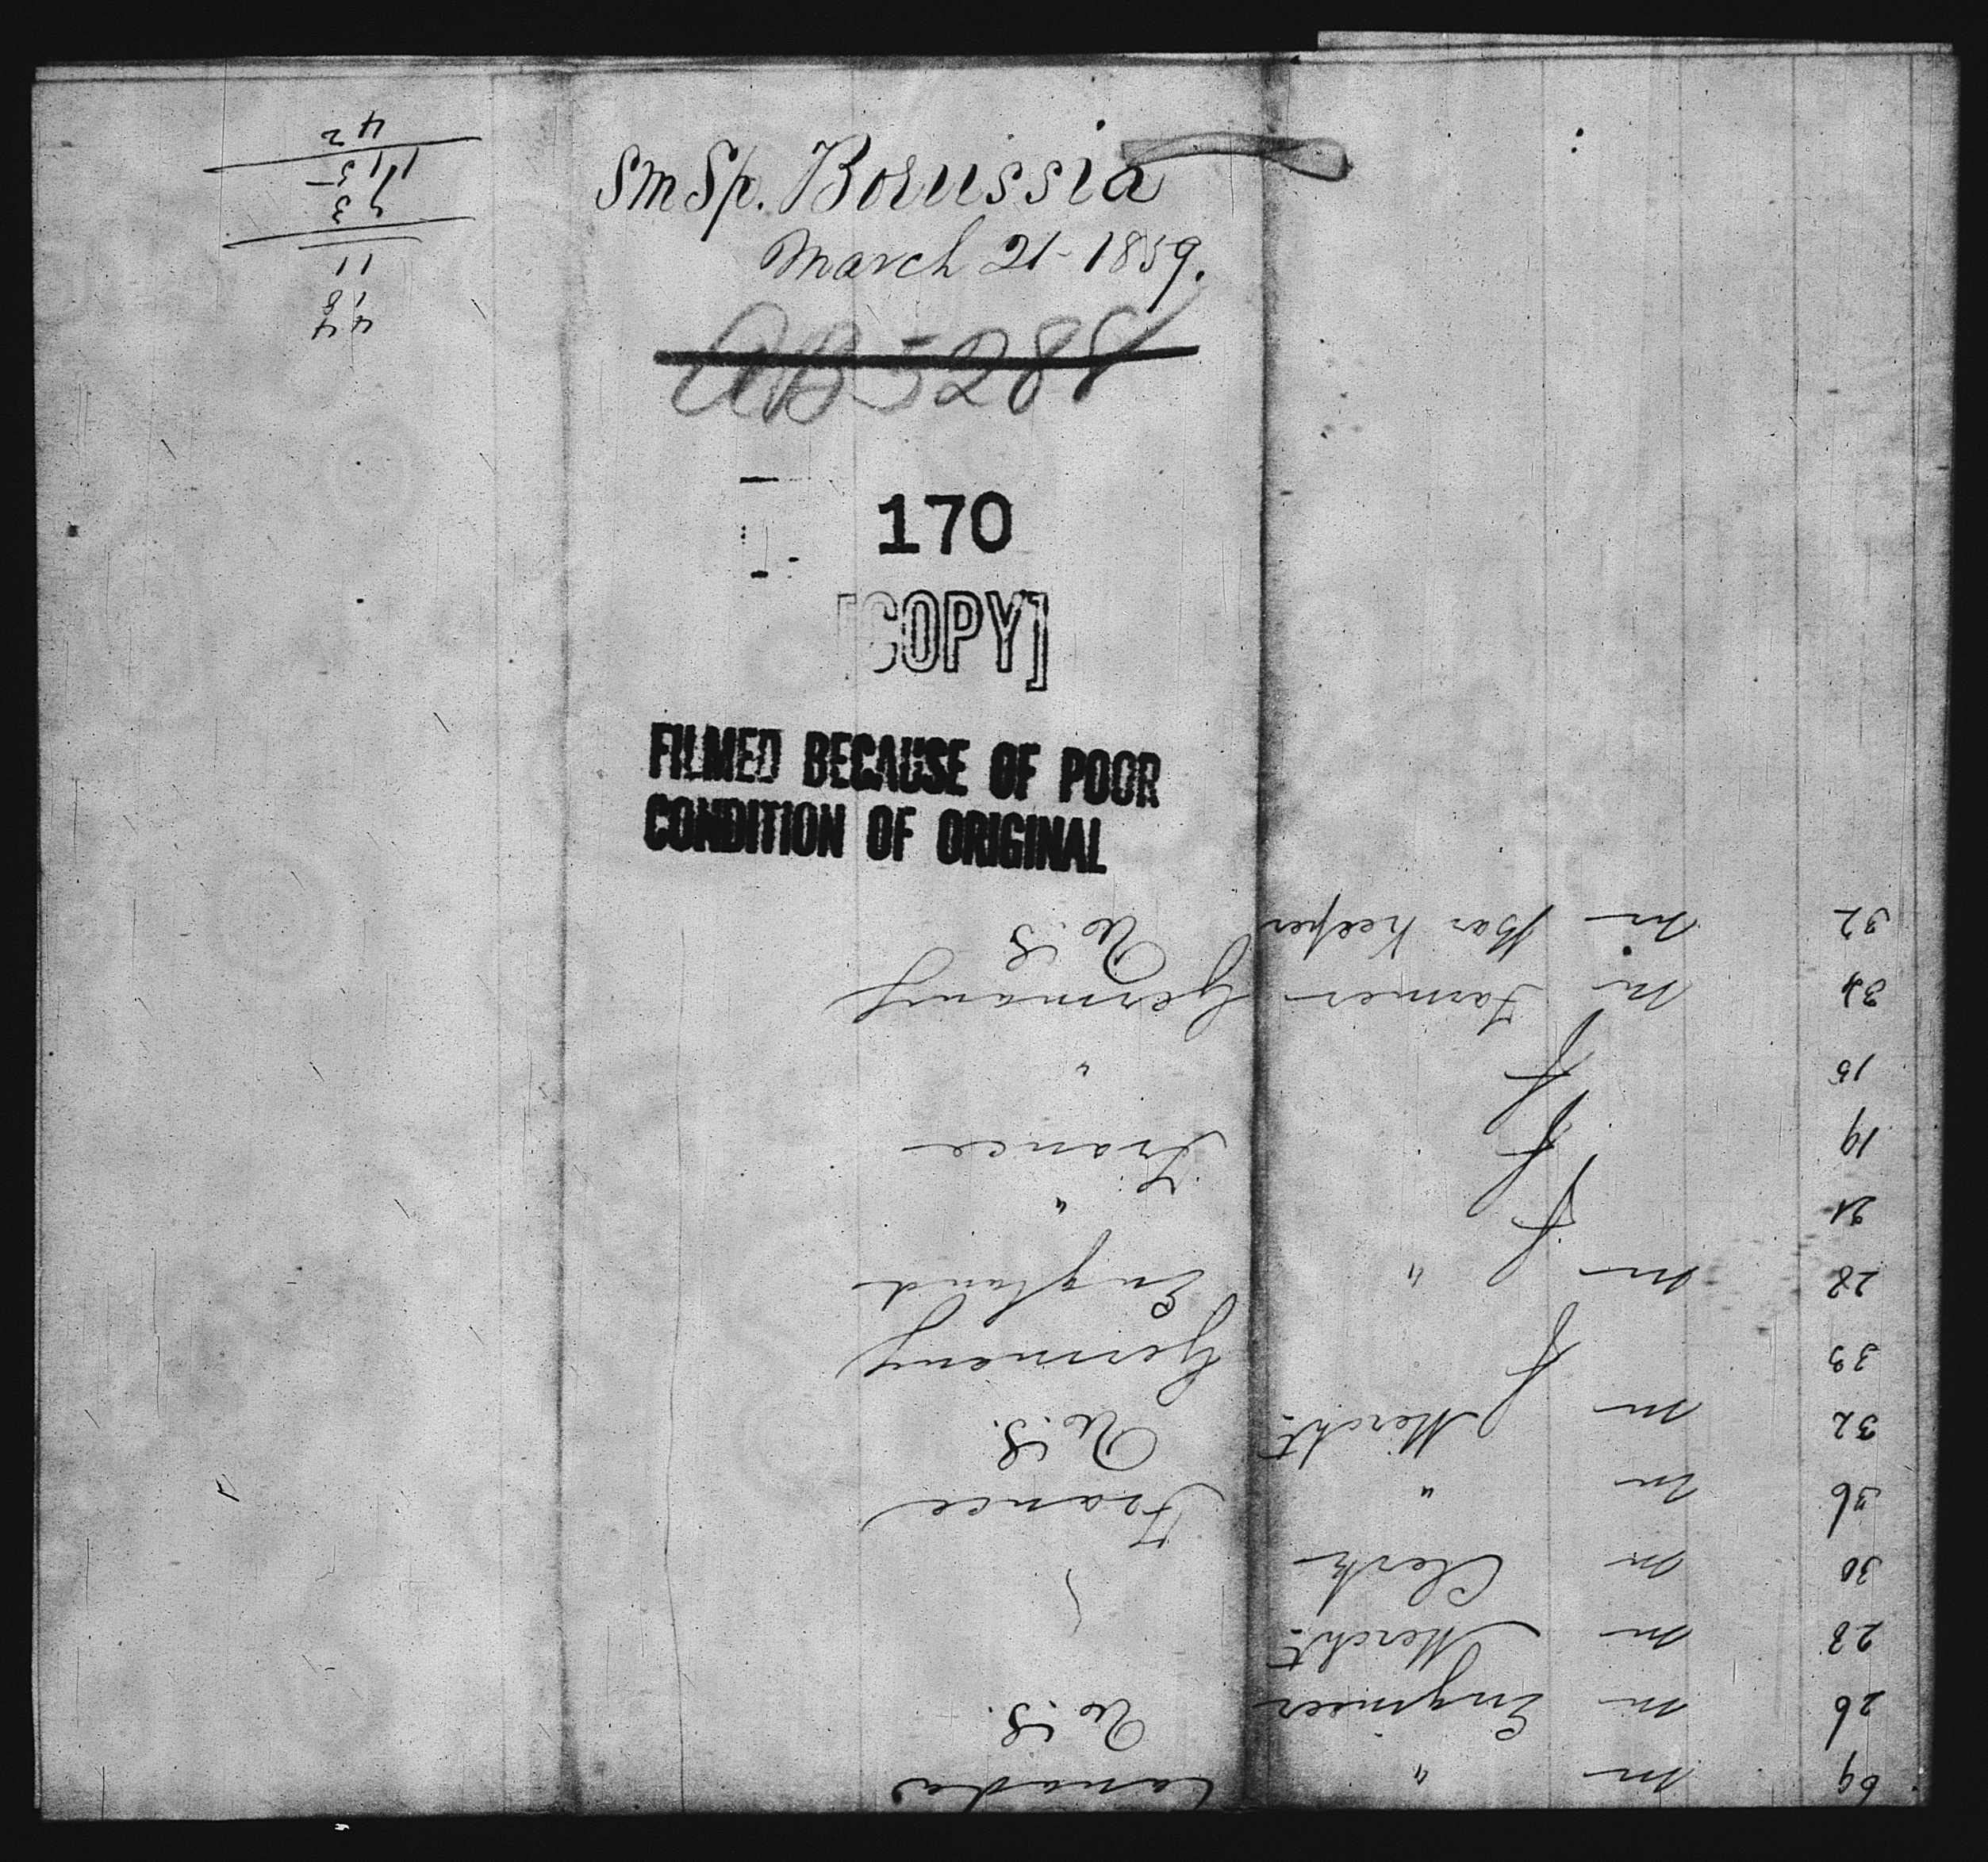 Sm Sp. Borussia
March 21 - 1859.
AB 5288
170
[COPY]
FILMED BECAUSE OF POOR
CONDITION OF ORIGINAL
69 m " Canada
26 m Engineer U.S.
28 m Mercht
30 m Clerk
36 m " France
32 m Mercht U.S.
33 f Germany
28 m " England
21 f "
19 f France
15 f "
34 m Farmer Germany
32 m Bar Keeper U.S
44
18
11
93
115
42